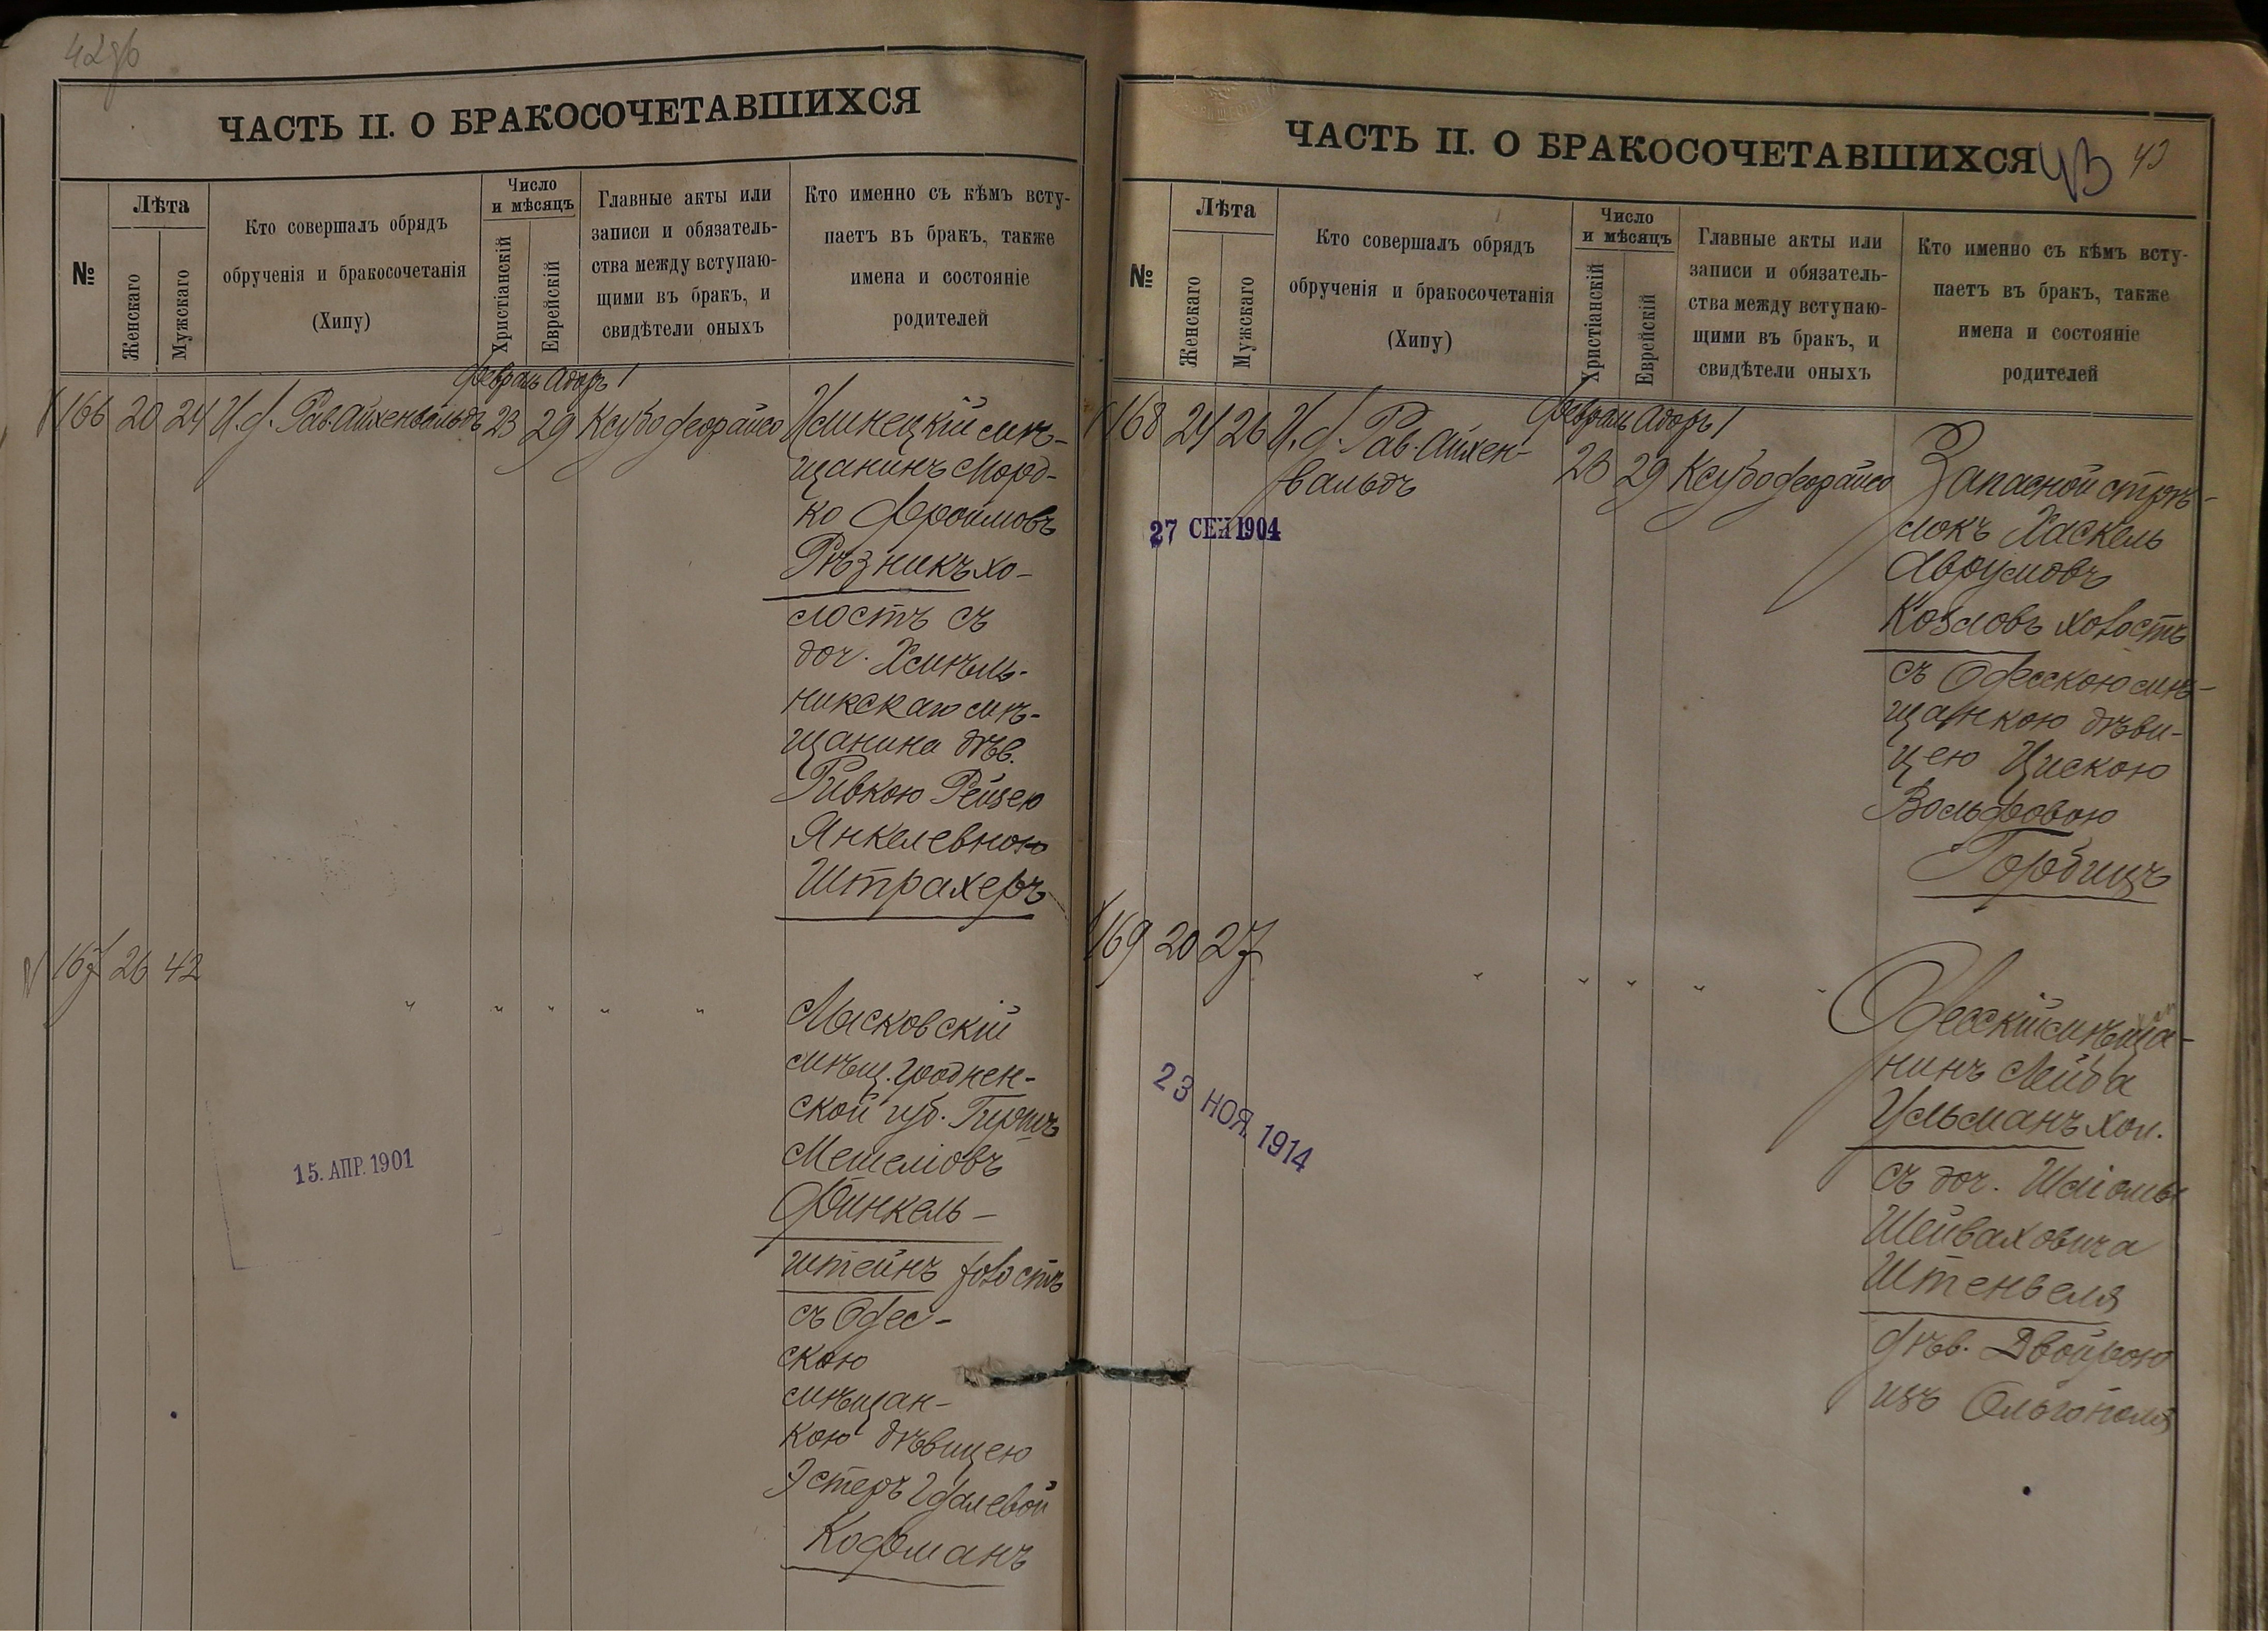 42об
ЧАСТЬ II. О БРАКОСОЧЕТАВШИХСЯ
№
Лѣта
Женскаго
Мужскаго
Кто совершалъ обрядъ
обрученія и бракосочетанія
(Хипу)
Число
и мѣсяцъ
Христіанскій
Еврейскій
Главные акты или
записи и обязатель-
ства между вступаю-
щими въ бракъ, и
свидѣтели оныхъ
Кто именно съ кѣмъ всту-
паетъ въ бракъ, также
имена и состояніе
родителей
Февраль Адаръ I
166 20 24 И.д. Рав. Айхенвальдъ 23 29 Ксубо деорайсо
мѣ-
щанинъ Морд-
ко Фроимовъ
Рѣзникъ хо-
лостъ съ
доч. Хмѣль-
никскаго мѣ-
щанина дѣв.
Ривкою Рейзею
Янкелевною
Штрахеръ
167 26 42 " " " " "
Лысковскій
мѣщ. Гроднен-
ской губ. Гиршъ
Мешелiовъ
Финкель-
штейнъ холостъ
съ Одес-
скою
мѣщан-
кою дѣвицею
Эстеръ Гдалевой
Кофманъ
15. АПР. 1901
ЧАСТЬ II. О БРАКОСОЧЕТАВШИХСЯ
43 43
№
Лѣта
Женскаго
Мужскаго
Кто совершалъ обрядъ
обрученія и бракосочетанія
(Хипу)
Число
и мѣсяцъ
Христіанскій
Еврейскій
Главные акты или
записи и обязатель-
ства между вступаю-
щими въ бракъ, и
свидѣтели оныхъ
Кто именно съ кѣмъ всту-
паетъ въ бракъ, также
имена и состояніе
родителей
Февраль Адаръ I
168 24 26 И.д. Рав. Айхен-
вальдъ
23 29 Ксубо деорайсо
27 СЕН 1904
Запасной стрѣ-
локъ Хаскель
Аврумовъ
Козловъ холостъ
съ Одесскою мѣ-
щанкою дѣви-
цею Цискою
Вольфовою
Горбицъ
169 20 27 " " " " "
23 НОЯ. 1914
Одесскій мѣща-
нинъ Лейба
Ульманъ хол.
съ доч. Шліомы
Шейваховича
Штенвеля
дѣв. Двойрою
изъ Ольгополя